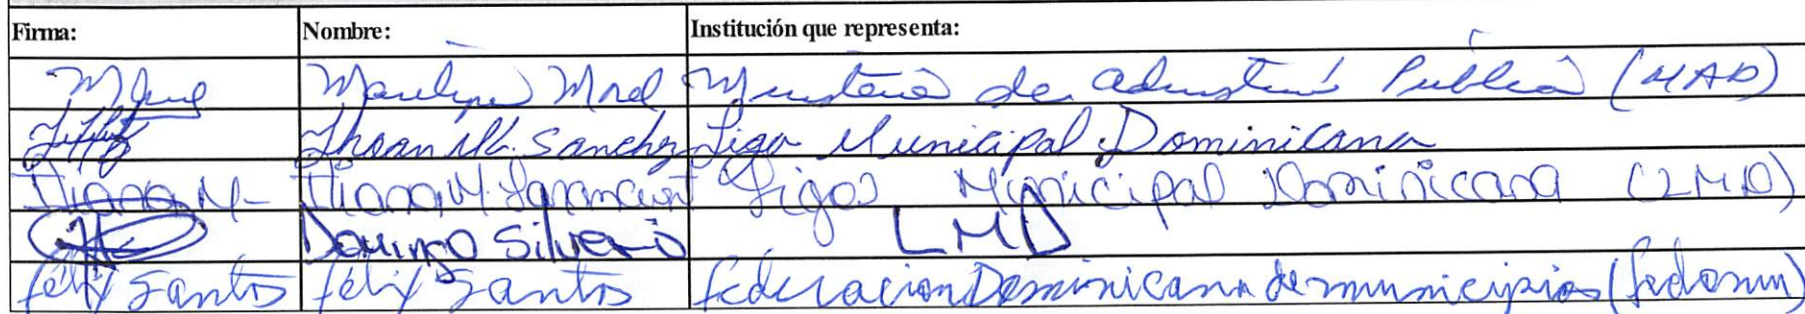 Firma: Nombre: Institución que representa:
Marilyn Morel Ministerio de Administración Pública (MAP)
Jhoan Ml. Sanchez Liga Municipal Dominicana
Iliana M- Iliana M. Liga Municipal Dominicana (LMD)
Domingo Silverio LMD
félix Santos félix Santos federacion Dominicana de municipios (fedomun)